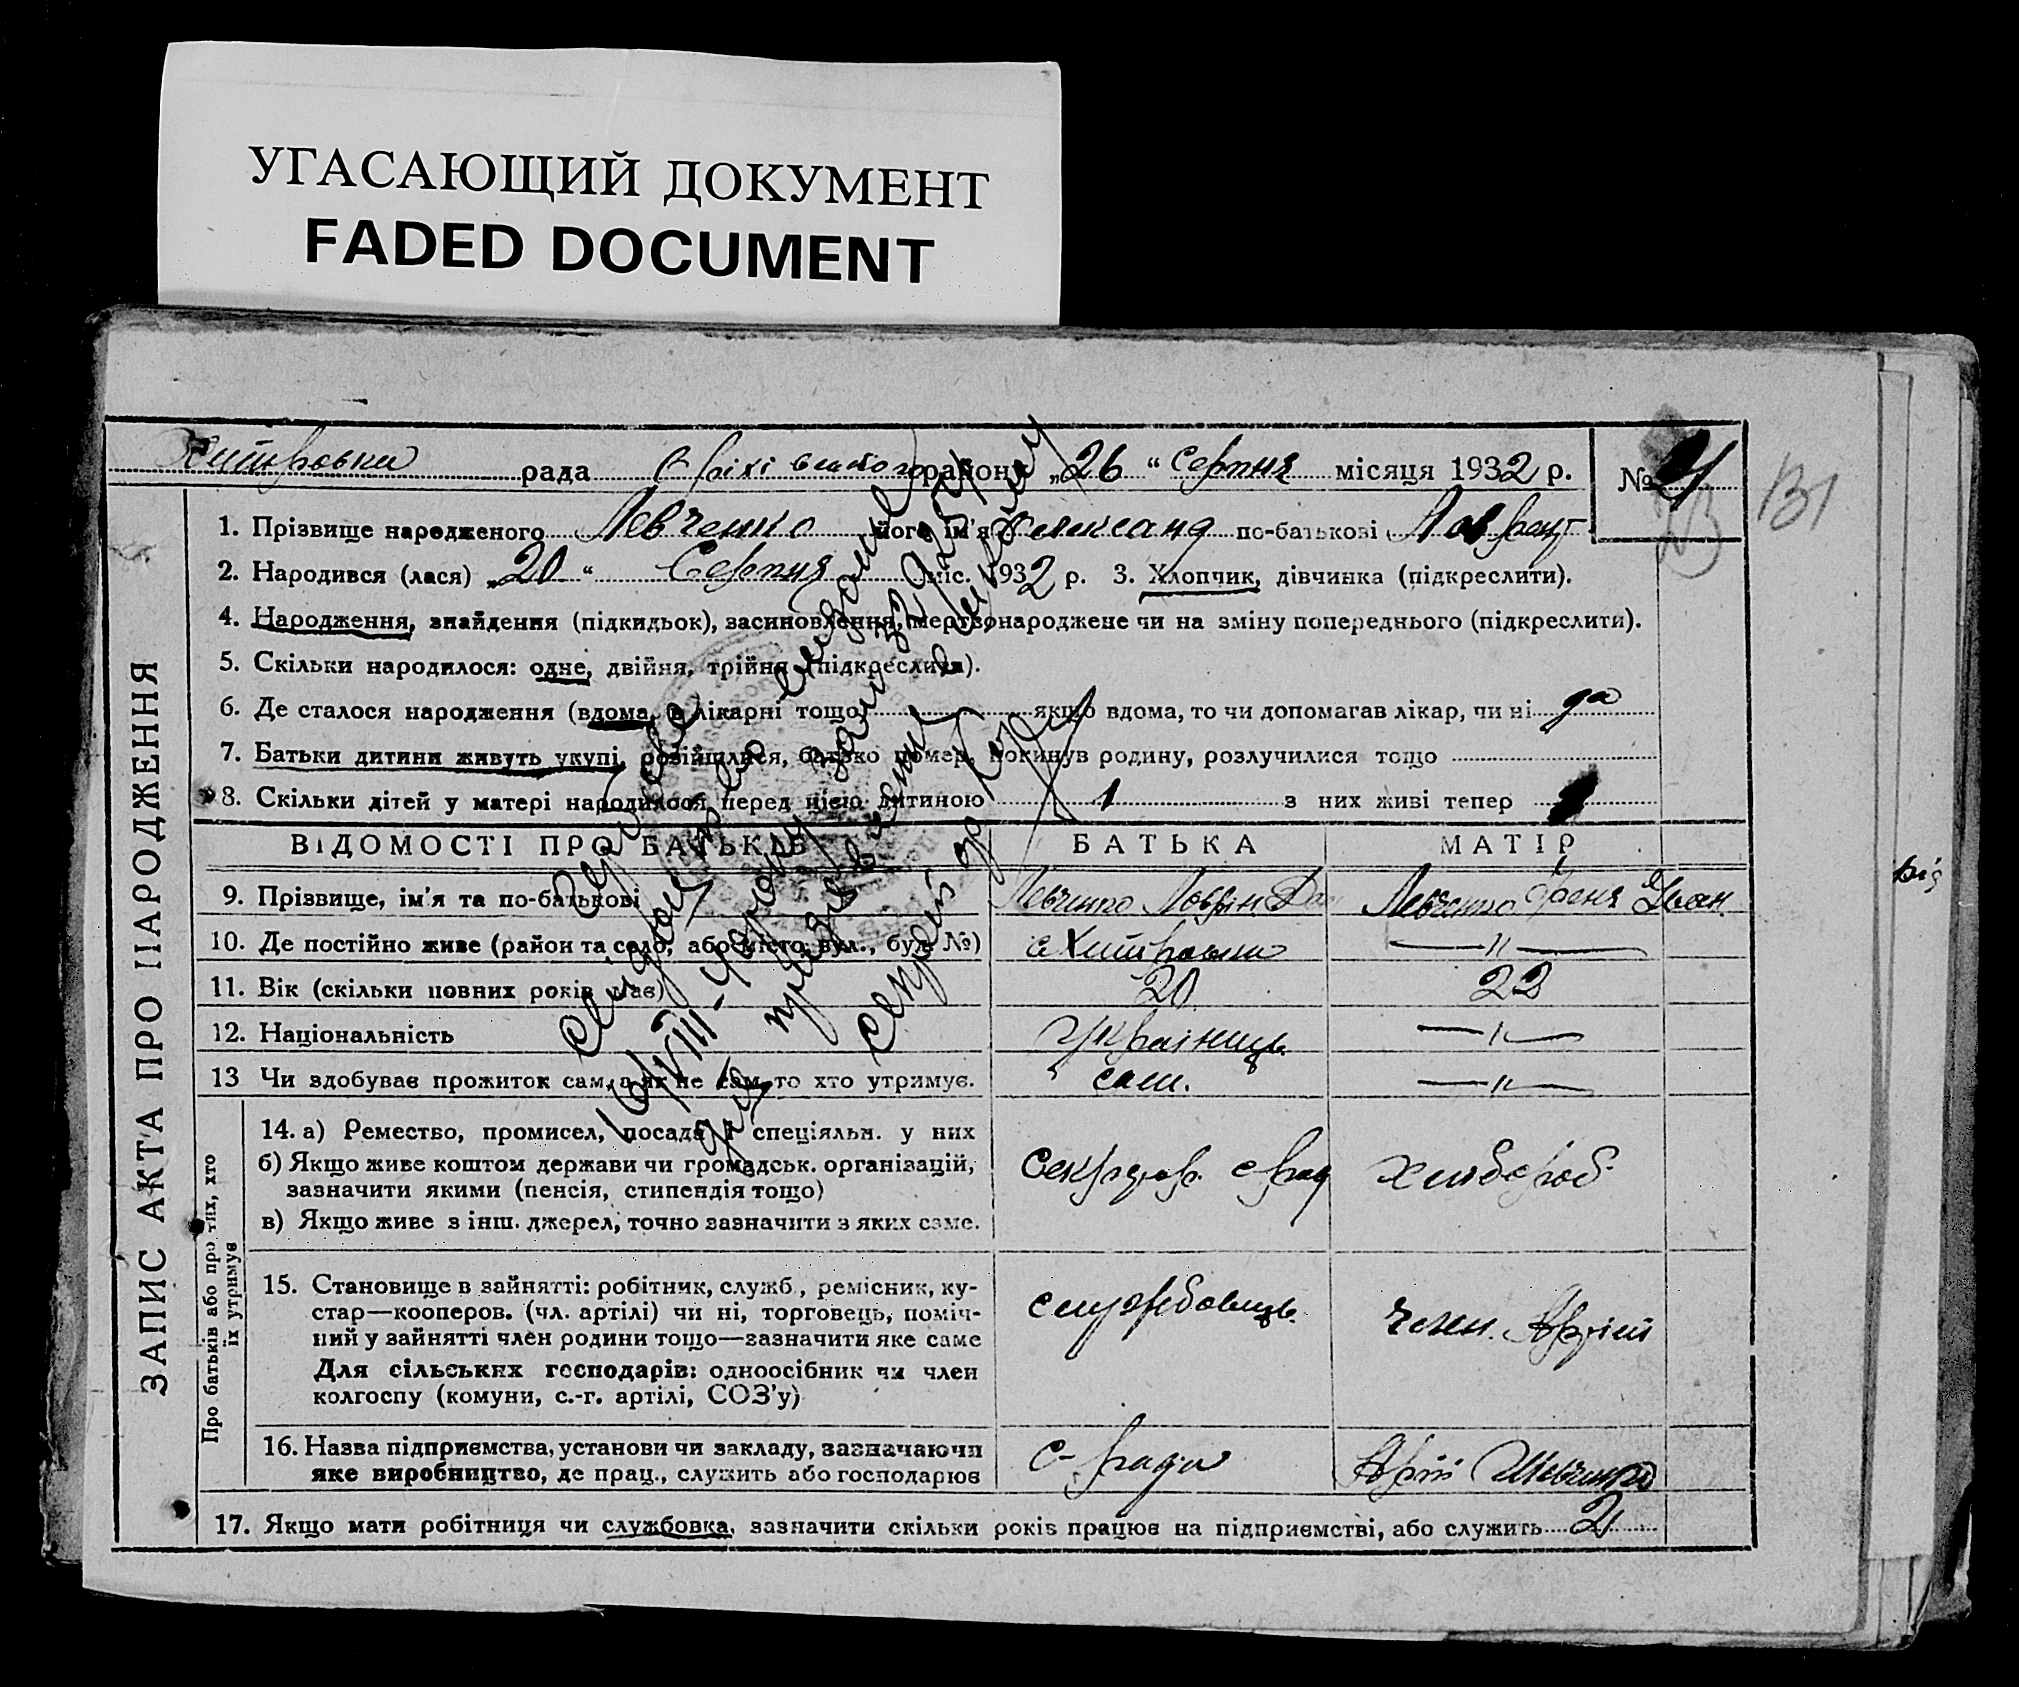 УГАСАЮЩИЙ ДОКУМЕНТ
FADED DOCUMENT
Хитровка рада району „26“ Серпня місяця 1932 р. № 21
131
1. Прізвище народженого Левченко його ім'я по-батькові
2. Народився (лася) „20“ Серпня міс. 1932 р. 3. Хлопчик, дівчинка (підкреслити).
4. Народження, знайдення (підкидьок), засиновлення, мертвонароджене чи на зміну попереднього (підкреслити).
5. Скільки народилося: одне, двійня, трійня (підкреслити).
6. Де сталося народження (вдома, в лікарні тощо якщо вдома, то чи допомагав лікар, чи ні да
7. Батьки дитини живуть укупі, розійшлися, батько помер, покинув родину, розлучилися тощо
8. Скільки дітей у матері народилося перед цією дитиною 1 з них живі тепер
ВІДОМОСТІ ПРО БАТЬКІВ БАТЬКА МАТІР
9. Прізвище, ім'я та по-батькові Левченко Левченко Іван.
10. Де постійно живе (район та село, або місто, вул., буд. №) с Хитровка —"—
11. Вік (скільки повних років має) 20 22
12. Національність Українець —"—
13 Чи здобуває прожиток сам, а як не сам, то хто утримує. сам. —"—
14. а) Ремество, промисел, посада і спеціяльн. у них
б) Якщо живе коштом держави чи громадськ. організацій,
зазначити якими (пенсія, стипендія тощо)
в) Якщо живе з інш. джерел, точно зазначити з яких саме.
Секретар. с рад хлібороб
15. Становище в зайнятті: робітник, служб., ремісник, ку-
стар—кооперов. (чл. артілі) чи ні, торговець, поміч-
ний у зайнятті член родини тощо—зазначити яке саме
Для сільських господарів: одноосібник чи член
колгоспу (комуни, с.-г. артілі, СОЗ'у)
службовець. член. Артіл
16. Назва підприємства, установи чи закладу, зазначаючи
яке виробництво, де прац., служить або господарює
С-рада Артіл Шевченко
17. Якщо мати робітниця чи службовка, зазначити скільки років працює на підприємстві, або служить 2
ЗАПИС АКТА ПРО НАРОДЖЕННЯ
Про батьків або про тих, хто
їх утримує
від